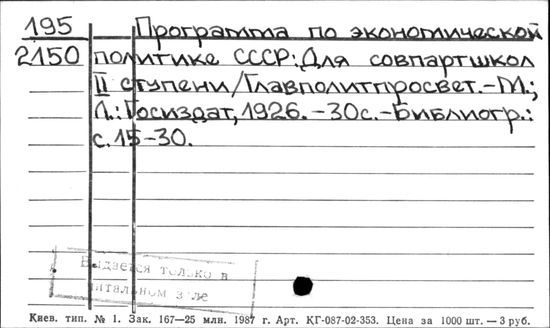 195 Программа по экономической
2150 политике СССР: Для совпартшкол
II ступени/Главполитпросвет.-М.;
Л.: Госиздат, 1926. -30с.-Библиогр.:
с. 15-30.
Выдается только в
читальном зале
Киев. тип. № 1. Зак. 167—25 млн. 1987 г. Арт. КГ-087-02-353. Цена за 1000 шт. — 3 руб.